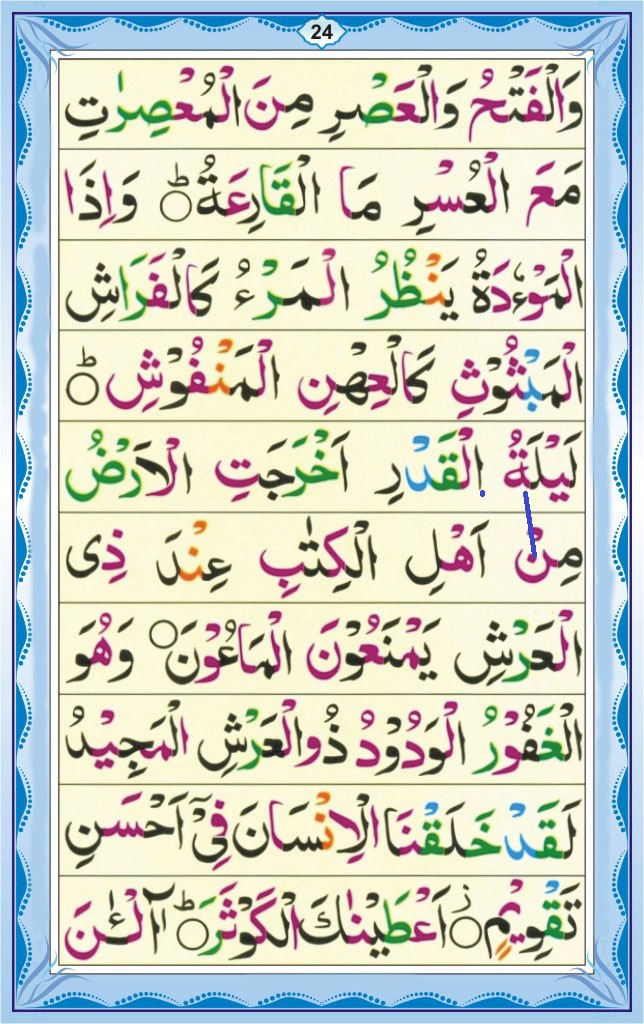 24
وَالْفَتْحُ وَالْعَصْرِ مِنَ الْمُعْصِرٰتِ
مَعَ الْعُسْرِ مَا الْقَارِعَةُ ۟ؕ وَاِذَا
الْمَوْءٗدَةُ يَنْظُرُ الْمَرْءُ كَالْفَرَاشِ
الْمَبْثُوْثِ كَالْعِهْنِ الْمَنْفُوْشِ ۟ؕ
لَيْلَةُ الْقَدْرِ اَخْرَجَتِ الْاَرْضُ
مِنْ اَهْلِ الْكِتٰبِ عِنْدَ ذِى
الْعَرْشِ يَمْنَعُوْنَ الْمَاعُوْنَ ۟ وَهُوَ
الْغَفُوْرُ الْوَدُوْدُ ذُوالْعَرْشِ الْمَجِيْدُ
لَقَدْ خَلَقْنَا الْاِنْسَانَ فِىْٓ اَحْسَنِ
تَقْوِيْمٍ ۟ز اَعْطَيْنٰكَ الْكَوْثَرَ ۟ؕ آلْـٰٔنَ